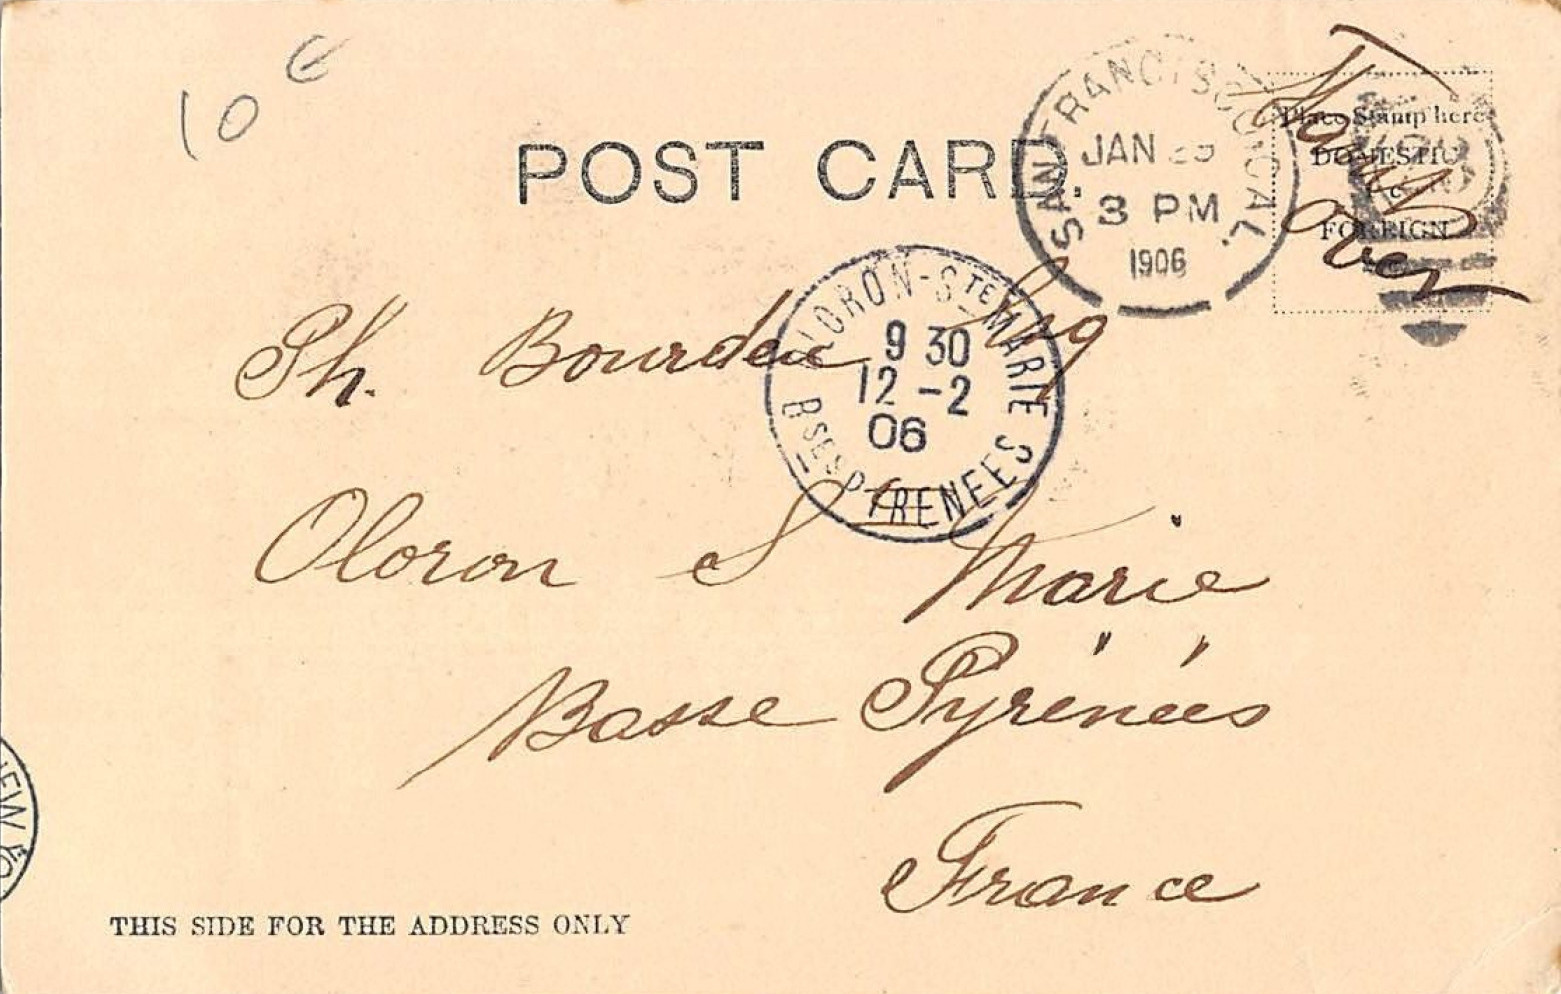 10 €
POST CARD.
SAN FRANCISCO, CAL.
JAN 29
3 PM
1906
Place Stamp here
DOMESTIC
FOREIGN
Stamp
Over
OLORON-STE MARIE
9 30
12 -2
06
BSES PYRENEES
Ph. Bourdeu
Oloron Ste Marie
Basse Pyrénées
France
NEW YO
THIS SIDE FOR THE ADDRESS ONLY